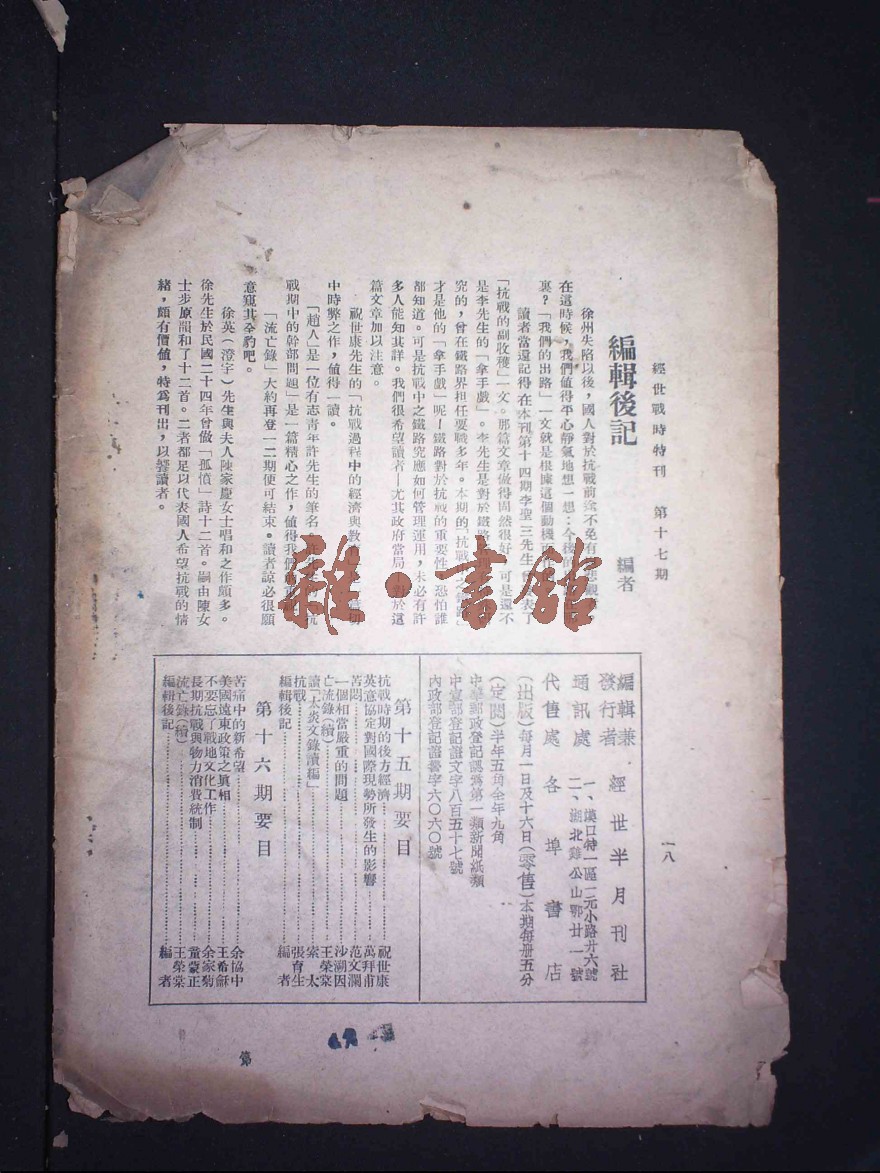 經世戰時特刊　第十七期
編輯後記
編者
徐州失陷以後，國人對於抗戰前途不免有
在這時候，我們値得平心靜氣地想一想：今後的
裏？「我們的出路」一文就是根據這個動機
讀者當還記得在本刊第十四期李聖三先生
「抗戰的副收穫」一文。那篇文章做得固然很好
是李先生的「拿手戲」。李先生是對於鐵路
究的，曾在鐵路界担任要職多年。本期的「抗戰
才是他的「拿手戲」呢！鐵路對於抗戰的重要性，恐怕誰
都知道。可是抗戰中之鐵路究應如何管理運用，未必有許
多人能知其詳。我們很希望讀者——尤其政府當局——對於這
篇文章加以注意。
祝世康先生的「抗戰過程中的經濟與教
中時弊之作，値得一讀。
「趙人」是一位有志靑年許先生的筆名
戰期中的幹部問題」是一篇精心之作，値得我們
「流亡錄」大約再登一二期便可結束。讀者諒必很願
意窺其全豹吧。
徐英（澄宇）先生與夫人陳家慶女士唱和之作頗多。
徐先生於民國二十四年曾做「孤憤」詩十二首。嗣由陳女
士步原韻和了十二首。二者都足以代表國人希望抗戰的情
緒，頗有價値，特爲刊出，以饗讀者。
一八
編輯兼發行者　經世半月刊社
通訊處　一、漢口特一區二元小路廿六號
二、湖北雞公山鄂廿一號
代售處　各埠書店
（出版）每月一日及十六日（零售）本期每册五分
（定閱）半年五角全年九角
中華郵政登記認爲第一類新聞紙類
中宣部登記證文字八百五十七號
內政部登記證警字六〇六〇號
第十五期要目
抗戰時期的後方經濟……祝世康
英意協定對國際現勢所發生的影響……萬拜甫
苦悶……范文瀾
一個相當嚴重的問題……沙湖因
亡流錄（續）……王榮棠
讀「太炎文錄續編」……索太
抗戰……張育生
編輯後記……編者
第十六期要目
苦痛中的新希望……余協中
美國遠東政策之眞相……王希龢
不要忘了戰地文化工作……余家菊
長期抗戰與物力消費統制……童蒙正
流亡錄（續）……王榮棠
編輯後記……編者
第
雜·書館